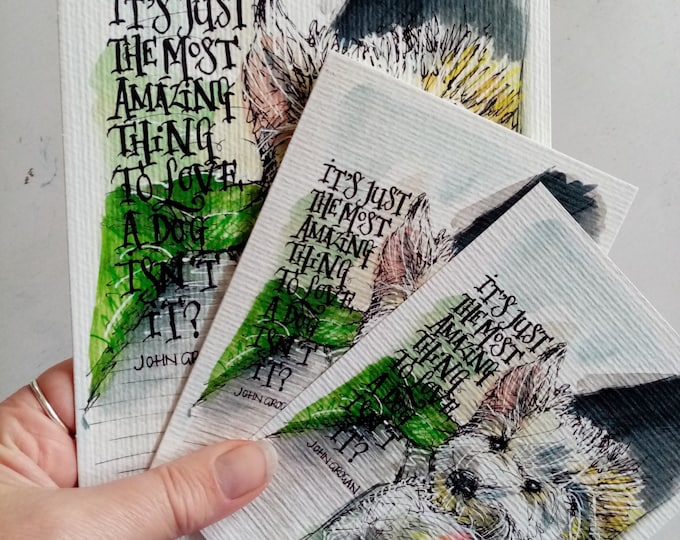 IT'S JUST
THE MOST
AMAZING
THING
TO LOVE
A DOG
ISN'T
IT?
JOHN GRO
IT'S JUST
THE MOST
AMAZING
THING
TO LOVE
A DOG
ISN'T
IT?
JOHN GRO
IT'S JUST
THE MOST
AMAZING
THING
TO LOVE
A DOG
IT?
JOHN GROGAN